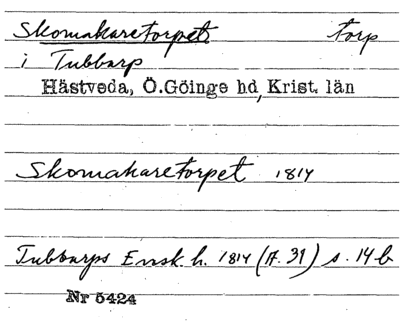 Skomakaretorpet torp
i Tubbarp
Hästveda, Ö.Göinge hd, Krist. län
Skomakaretorpet 1814
Tubbarps Ensk. h. 1814 (A. 39) s. 14 b
Nr 5424